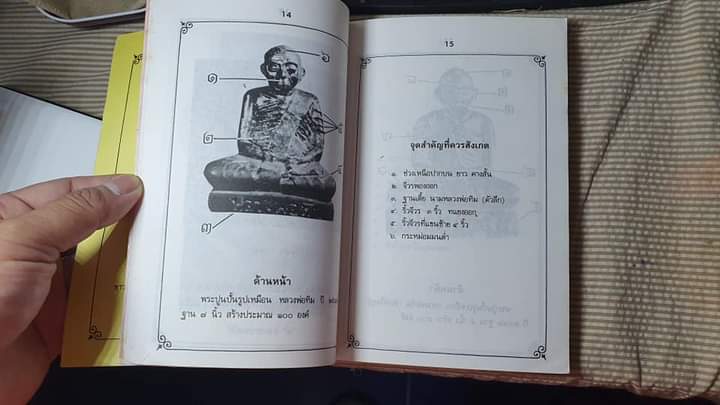 14
๑
๖
๒
๓
ด้านหน้า
พระปูนปั้นรูปเหมือน หลวงพ่อทิม ปี
ฐาน ๗ นิ้ว สร้างประมาณ ๑๐๐ องค์
15
จุดสำคัญที่ควรสังเกต
๑. ช่วงเหนือปากบน ยาว คางสั้น
๒. จีวรพองออก
๓. ฐานเตี้ย นามหลวงพ่อทิม (ตัวลึก)
๔. ริ้วจีวร ๓ ริ้ว ทแยงออก
๕. ริ้วจีวรที่แขนซ้าย ๔ ริ้ว
๖. กระหม่อมมนต่ำ